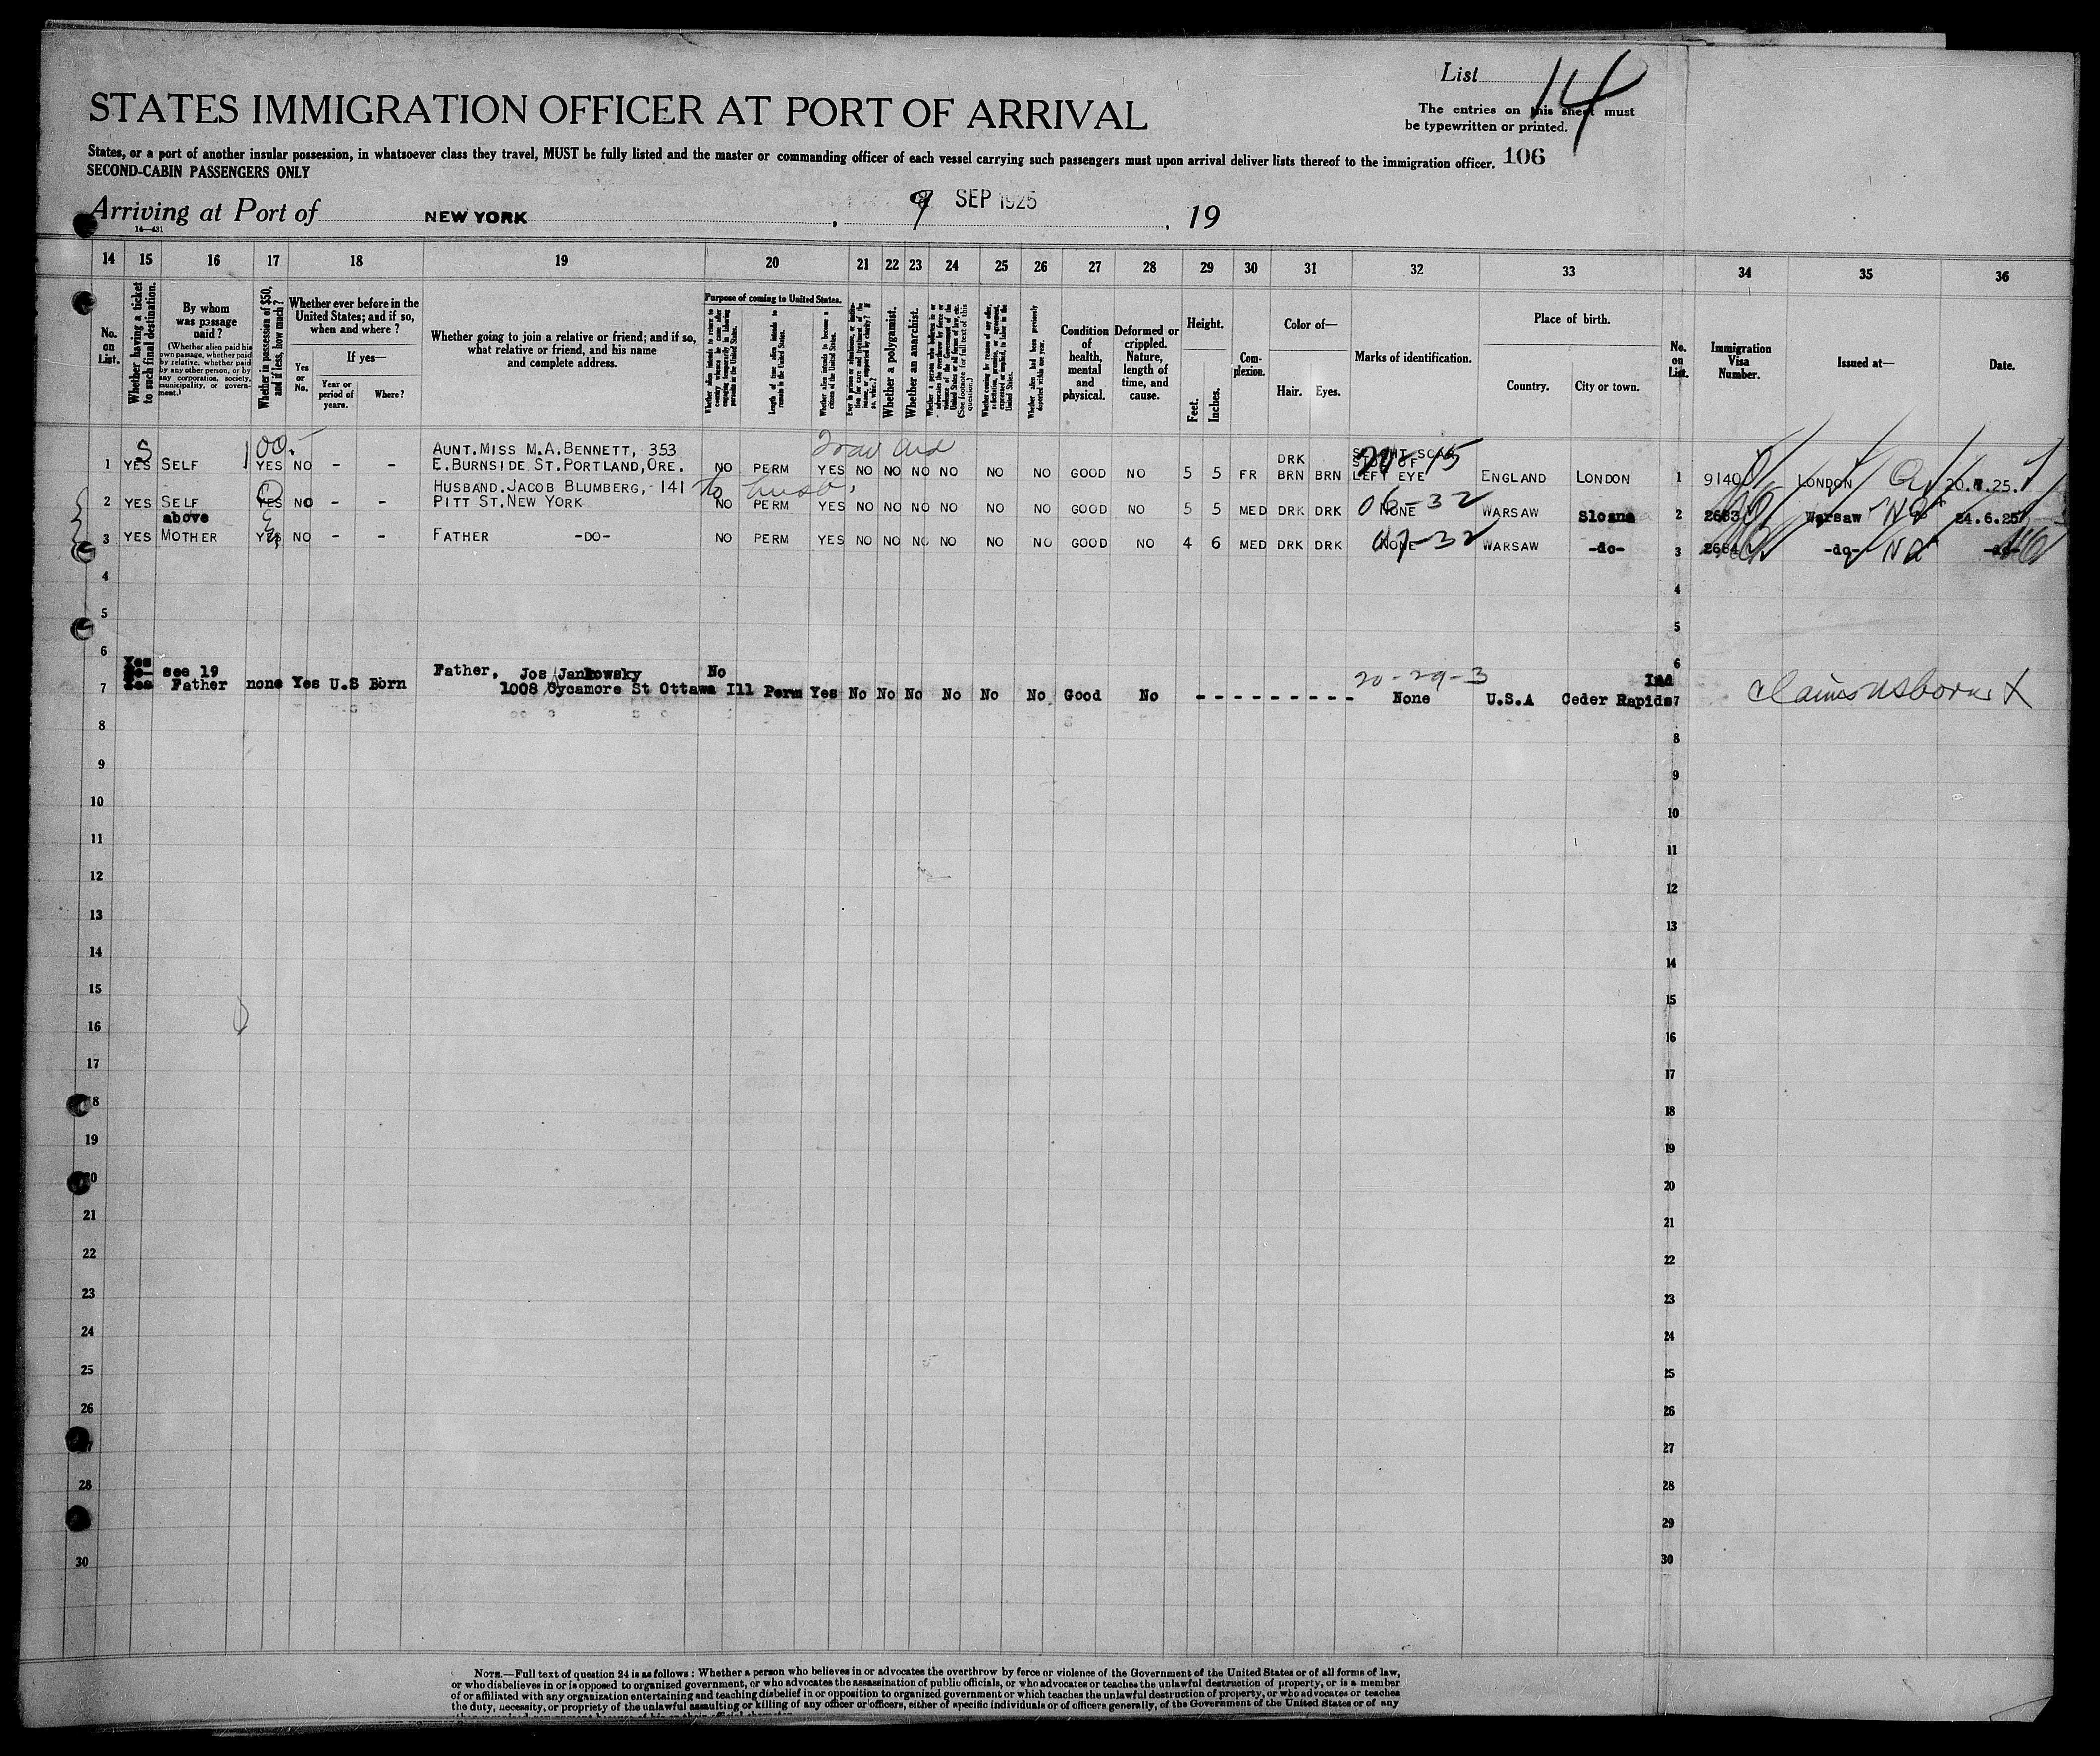 List 14
STATES IMMIGRATION OFFICER AT PORT OF ARRIVAL
The entries on this sheet must
be typewritten or printed.
States, or a port of another insular possession, in whatsoever class they travel, MUST be fully listed and the master or commanding officer of each vessel carrying such passengers must upon arrival deliver lists thereof to the immigration officer. 106
SECOND-CABIN PASSENGERS ONLY
Arriving at Port of NEW YORK, 9 SEP 1925, 19
14—431
14 15 16 17 18 19 20 21 22 23 24 25 26 27 28 29 30 31 32 33 34 35 36
No. on List.
Whether having a ticket to such final destination.
By whom was passage paid?
(Whether alien paid his own passage, whether paid by relative, whether paid by any other person, or by any corporation, society, municipality, or government.)
Whether in possession of $50, and if less, how much?
Whether ever before in the United States; and if so, when and where?
Yes or No.
If yes—
Year or period of years.
Where?
Whether going to join a relative or friend; and if so, what relative or friend, and his name and complete address.
Purpose of coming to United States.
Whether alien intends to return to country whence he came after engaging temporarily in laboring pursuits in the United States.
Length of time alien intends to remain in the United States.
Whether alien intends to become a citizen of the United States.
Ever in prison or almshouse, or institution for care and treatment of the insane, or supported by charity? If so, which?
Whether a polygamist.
Whether an anarchist.
(See footnote for full text of this question.)
Whether alien had been previously deported within one year.
Condition of health, mental and physical.
Deformed or crippled. Nature, length of time, and cause.
Height.
Feet.
Inches.
Complexion.
Color of—
Hair.
Eyes.
Marks of identification.
Place of birth.
Country.
City or town.
No. on List.
Immigration Visa Number.
Issued at—
Date.
S 100.- AUNT. MISS M.A. BENNETT, 353 DRK
1 YES SELF YES NO - - E. BURNSIDE ST. PORTLAND, ORE. NO PERM YES NO NO NO NO NO NO GOOD NO 5 5 FR BRN BRN LEFT EYE ENGLAND LONDON 1 9140 LONDON 25.
HUSBAND. JACOB BLUMBERG, - 141 to husb.
2 YES SELF YES NO - - PITT ST. NEW YORK NO PERM YES NO NO NO NO NO NO GOOD NO 5 5 MED DRK DRK NONE 06-32 WARSAW Sloana 2 2663 Warsaw 24.6.25
above
3 YES MOTHER YES NO - - FATHER -DO- NO PERM YES NO NO NO NO NO NO GOOD NO 4 6 MED DRK DRK NONE WARSAW -do- 3 2664 -do- -do-
4 4
5 5
6 6
Yes see 19 Father, Jos Jankowsky No 20-29-3 Ind
7 Father none Yes U.S Born 1008 Sycamore St Ottawa Ill Perm Yes No No No No No No Good No - - - - - - - - - None U.S.A Ceder Rapids 7 claims usborn X
8 8
9 9
10 10
11 11
12 12
13 13
14 14
15 15
16 16
17 17
18 18
19 19
20 20
21 21
22 22
23 23
24 24
25 25
26 26
27 27
28 28
29 29
30 30
NOTE.—Full text of question 24 is as follows: Whether a person who believes in or advocates the overthrow by force or violence of the Government of the United States or of all forms of law,
or who disbelieves in or is opposed to organized government, or who advocates the assassination of public officials, or who advocates or teaches the unlawful destruction of property, or is a member
of or affiliated with any organization entertaining and teaching disbelief in or opposition to organized government or which teaches the unlawful destruction of property, or who advocates or teaches
the duty, necessity, or propriety of the unlawful assaulting or killing of any officer or officers, either of specific individuals or of officers generally, of the Government of the United States or of any